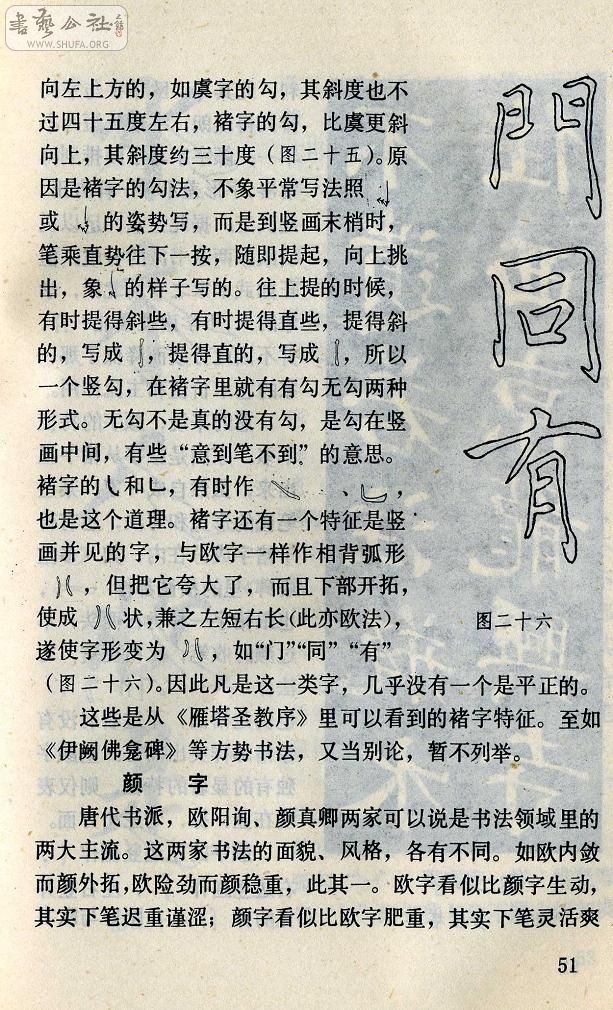 書藝公社
WWW.SHUFA.ORG
向左上方的，如虞字的勾，其斜度也不
过四十五度左右，褚字的勾，比虞更斜
向上，其斜度约三十度（图二十五）。原
因是褚字的勾法，不象平常写法照
或 的姿势写，而是到竖画末梢时，
笔乘直势往下一按，随即提起，向上挑
出，象 的样子写的。往上提的时候，
有时提得斜些，有时提得直些，提得斜
的，写成 ，提得直的，写成 ，所以
一个竖勾，在褚字里就有有勾无勾两种
形式。无勾不是真的没有勾，是勾在竖
画中间，有些“意到笔不到”的意思。
褚字的㇂和乚，有时作 、 ，
也是这个道理。褚字还有一个特征是竖
画并见的字，与欧字一样作相背弧形
，但把它夸大了，而且下部开拓，
使成 状，兼之左短右长（此亦欧法），
遂使字形变为 ，如“门”“同”“有”
（图二十六）。因此凡是这一类字，几乎没有一个是平正的。
門同有
图二十六
这些是从《雁塔圣教序》里可以看到的褚字特征。至如
《伊阙佛龛碑》等方势书法，又当别论，暂不列举。
颜 字
唐代书派，欧阳询、颜真卿两家可以说是书法领域里的
两大主流。这两家书法的面貌、风格，各有不同。如欧内敛
而颜外拓，欧险劲而颜稳重，此其一。欧字看似比颜字生动，
其实下笔迟重谨涩；颜字看似比欧字肥重，其实下笔灵活爽
51